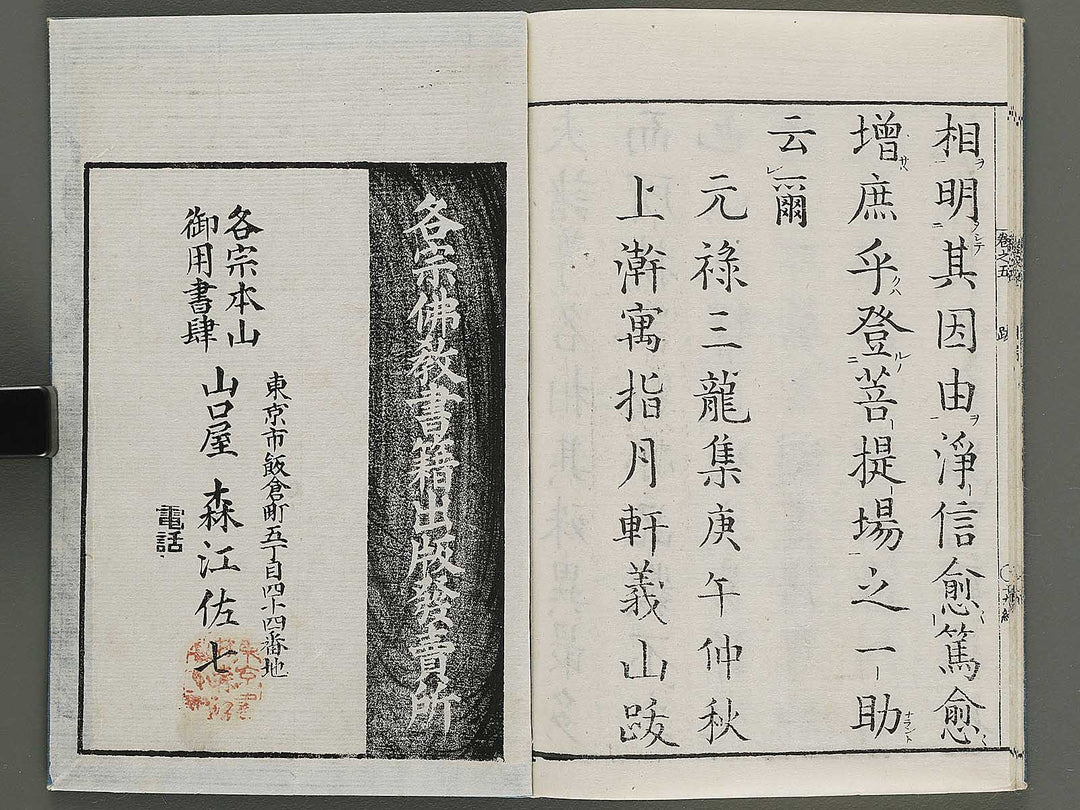 相明其因由淨信愈篤愈
增庶乎登菩提場之一助
云爾
元祿三龍集庚午仲秋
上澣寓指月軒義山跋
卷之五
跋
各宗佛教書籍出版發賣所
東京市飯倉町五丁目四十四番地
各宗本山
御用書肆
山口屋 森江佐七
電話